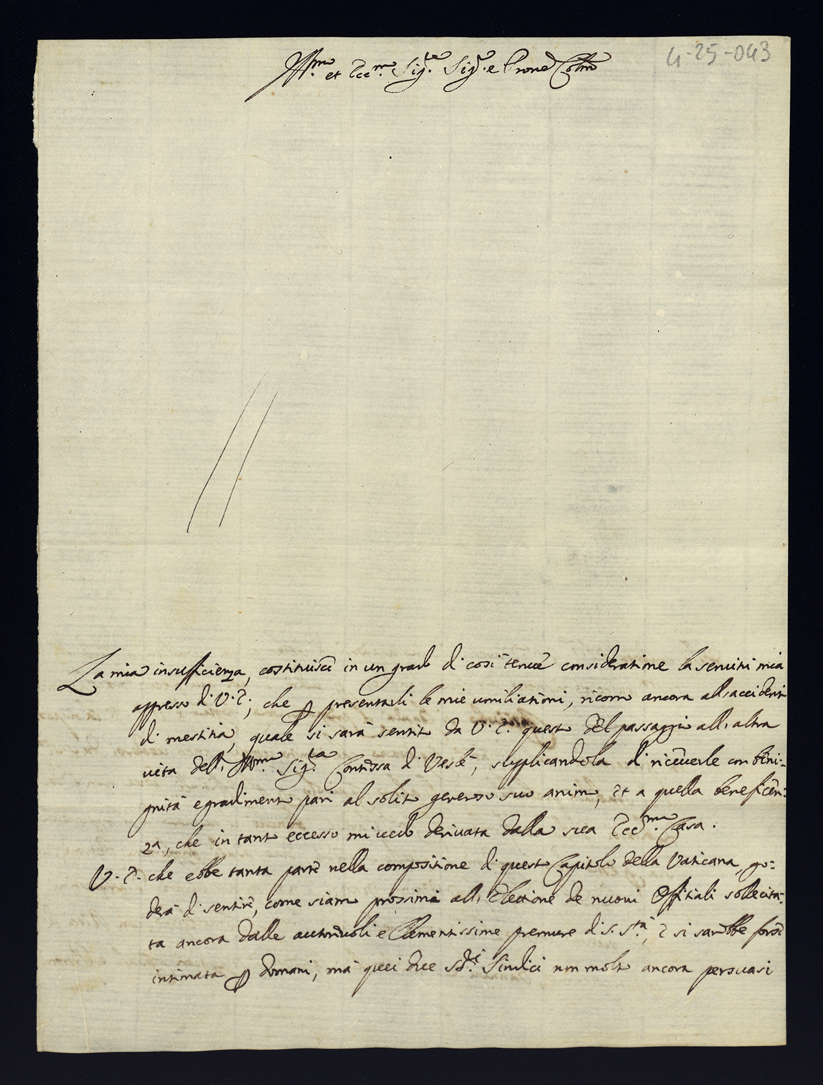 4-25-043
Ill.mo et Ecc.mo Sig.re Sig.r e Prone Col.mo
La mia insufficienza, costituisce in un grado di così tenue consideratione la servitù mia
appresso di V. E., che p presentarli le mie umiliationi, ricorro ancora all'accidenti
di mestitia, quale si sarà sentito da V. E. questo del passaggio all'altra
vita dell' Ill.ma Sig.ra Contessa di Veslè, supplicandola di riceverle con beni-
gnità e gradimento pari al solito generoso suo animo, et a quella beneficen-
za, che in tanto eccesso mi vedo derivata dalla sua Ecc.ma Casa.
V. E. che ebbe tanta parte nella compositione di questo Capitolo della Vaticana, go-
derà di sentire, come siamo prossimi all' Elettione de nuovi Offitiali sollecita-
ta ancora dalle autorevoli e Clementissime premure di S. S.tà, e si sarebbe forse
intimata p domani, mà quei due Sd.i Sindici non molto ancora persuasi